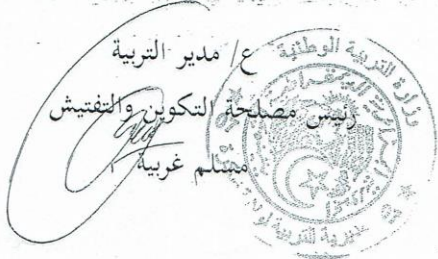 ع/ مدير التربية
رئيس مصلحة التكوين والتفتيش
مسلم غربية
وزارة التربية الوطنية
مديرية التربية